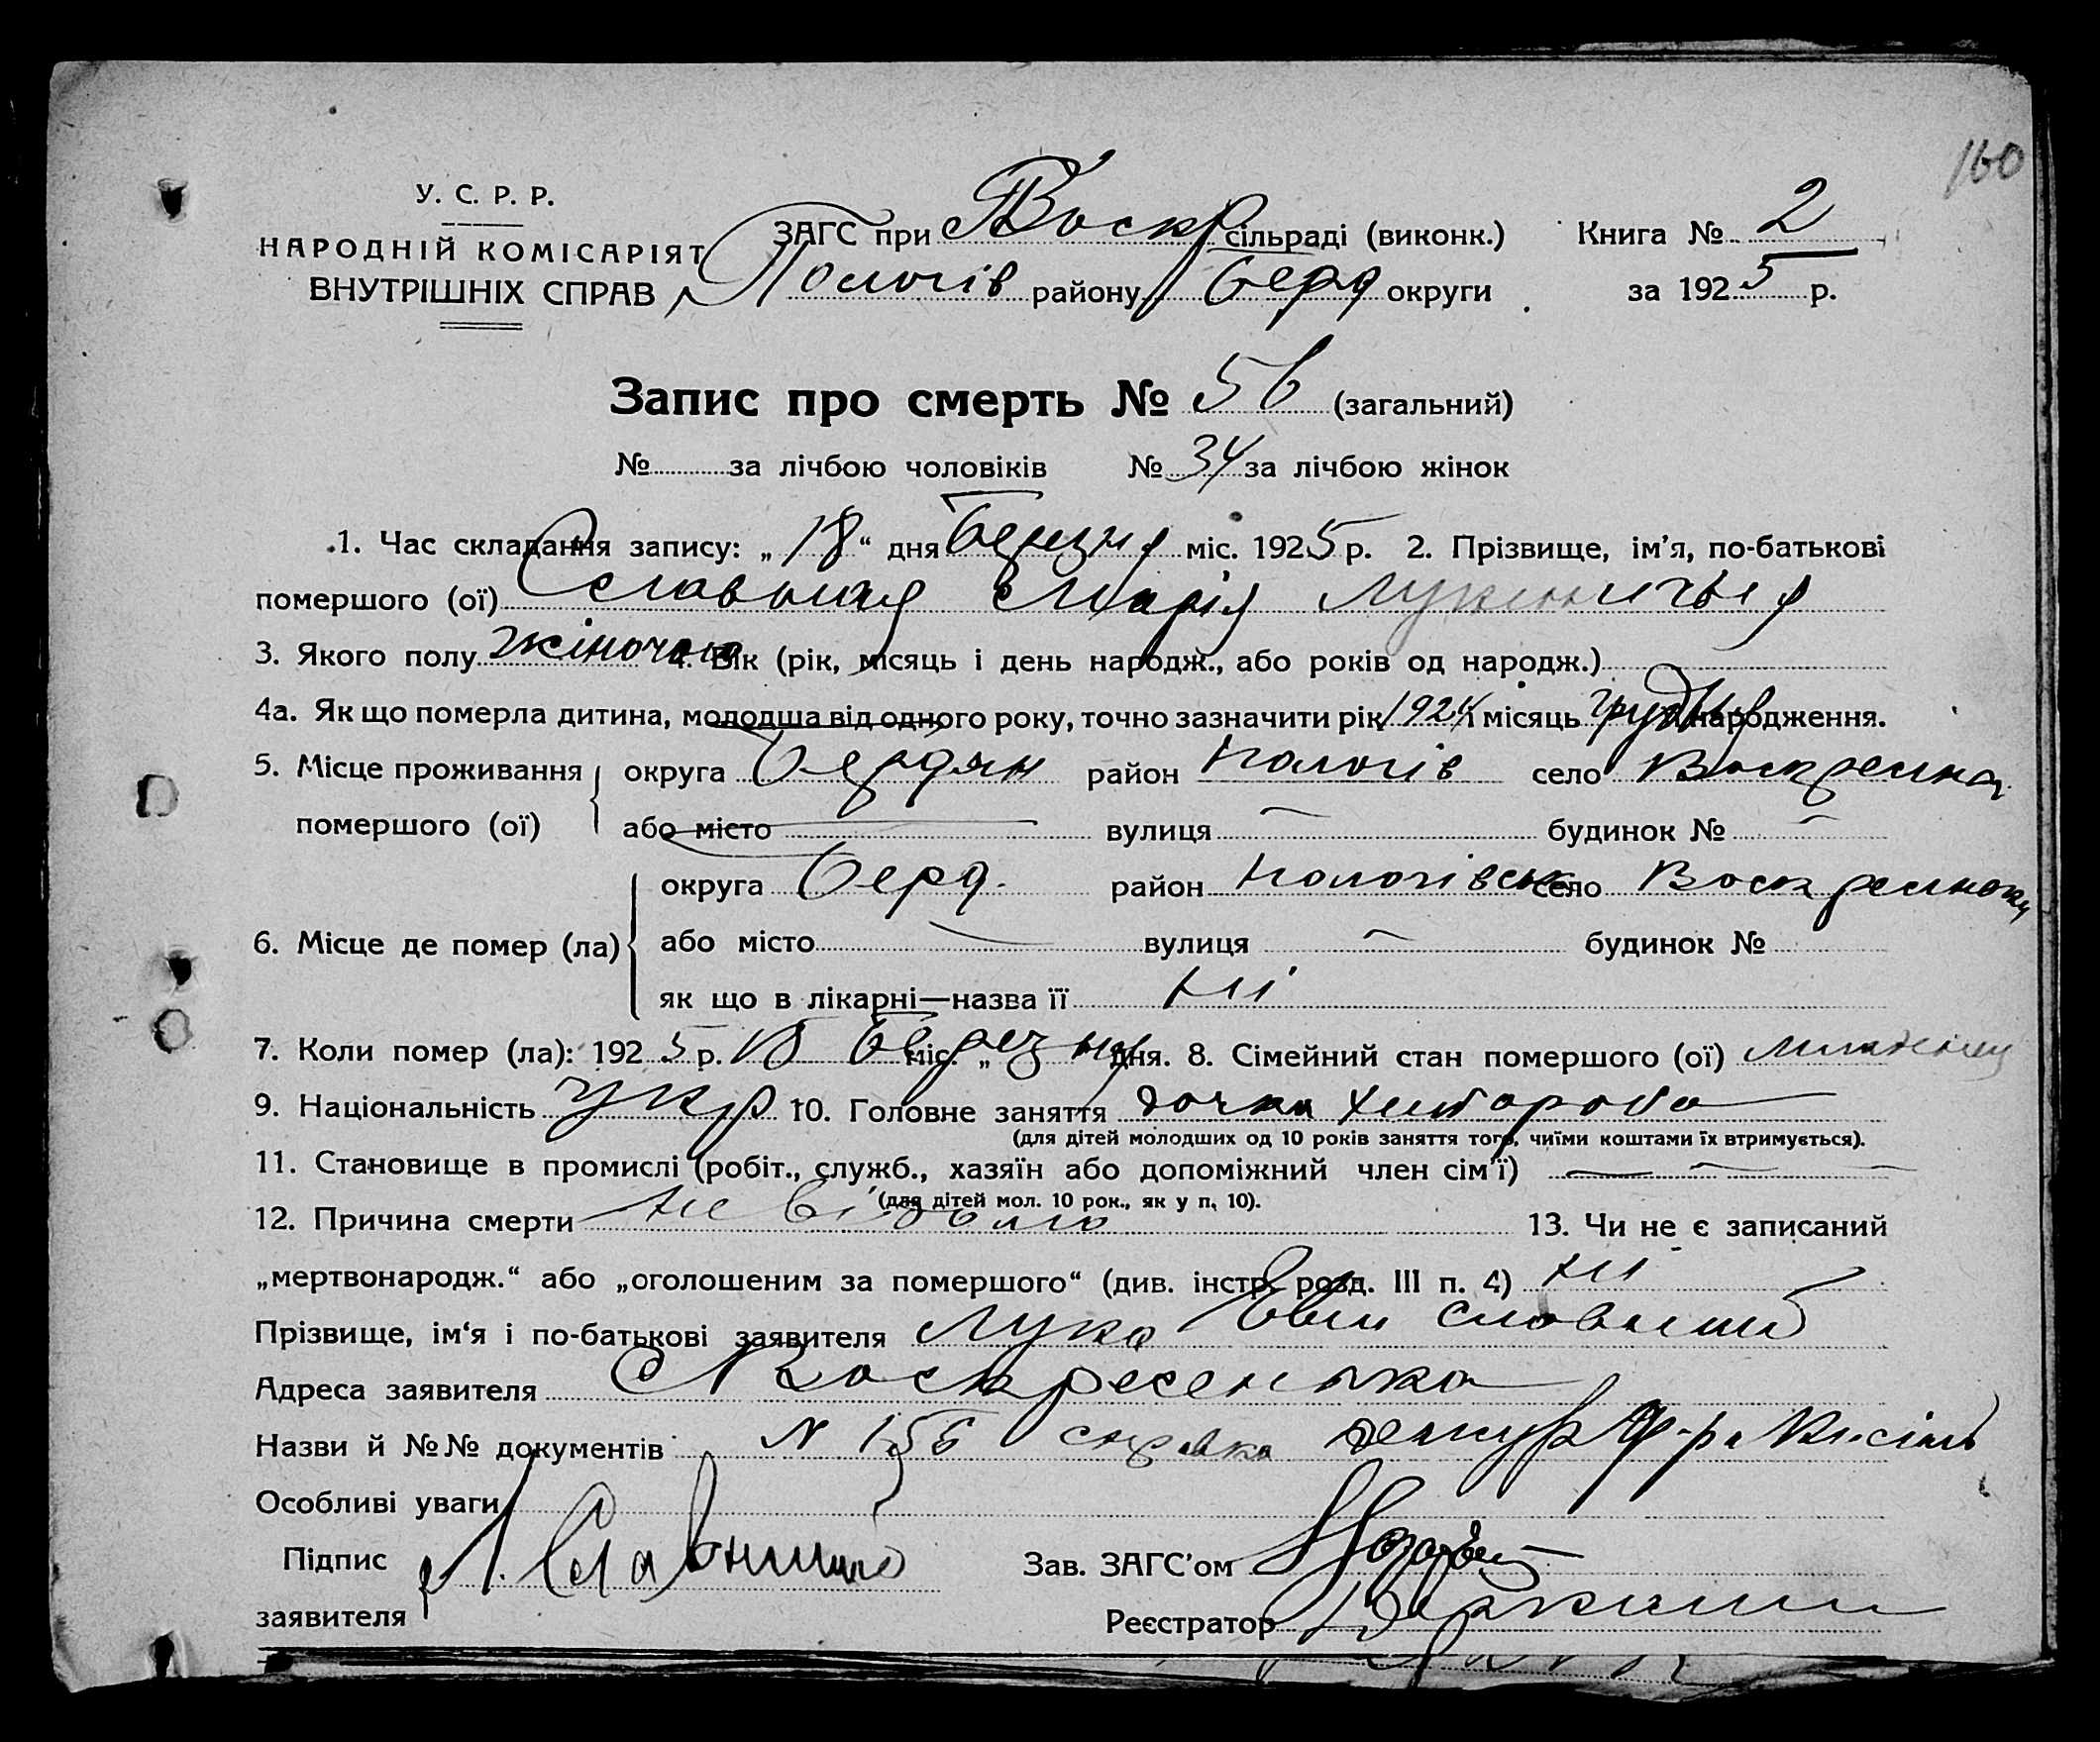 160
У. С. Р. Р.
НАРОДНІЙ КОМІСАРІЯТ
ВНУТРІШНІХ СПРАВ
ЗАГС при Воскр сільраді (виконк.) Книга № 2
Пологів району Берд округи за 1925 р.
Запис про смерть № 56 (загальний)
№ за лічбою чоловіків № 34 за лічбою жінок
1. Час складання запису: „18“ дня березня міс. 1925 р. 2. Прізвище, ім’я, по-батькові
помершого (ої) Славьная Марія
3. Якого полу жіночого 4. Вік (рік, місяць і день народж., або років од народж.)
4а. Як що померла дитина, молодша від одного року, точно зазначити рік 1924 і місяць грудня народження.
5. Місце проживання округа Бердян район Пологів село
помершого (ої) або місто — вулиця — будинок № —
6. Місце де помер (ла) округа Берд. район Пологівськ село
або місто — вулиця — будинок №
як що в лікарні—назва її Ні
7. Коли помер (ла): 1925 р. березня міс. „ дня. 8. Сімейний стан помершого (ої)
9. Національність Укр 10. Головне заняття дочка хлібороба
(для дітей молодших од 10 років заняття того, чиїми коштами їх втримується).
11. Становище в промислі (робіт., служб., хазяїн або допоміжний член сім’ї) — — —
(для дітей мол. 10 рок., як у п. 10).
12. Причина смерти невідомо 13. Чи не є записаний
„мертвонародж.“ або „оголошеним за помершого“ (див. інстр. розд. III п. 4) Ні
Прізвище, ім‘я і по-батькові заявителя Лука
Адреса заявителя С Воскресенька
Назви й №№ документів № 156 справка
Особливі уваги
Підпис заявителя Л. Славн
Зав. ЗАГС’ом
Реєстратор